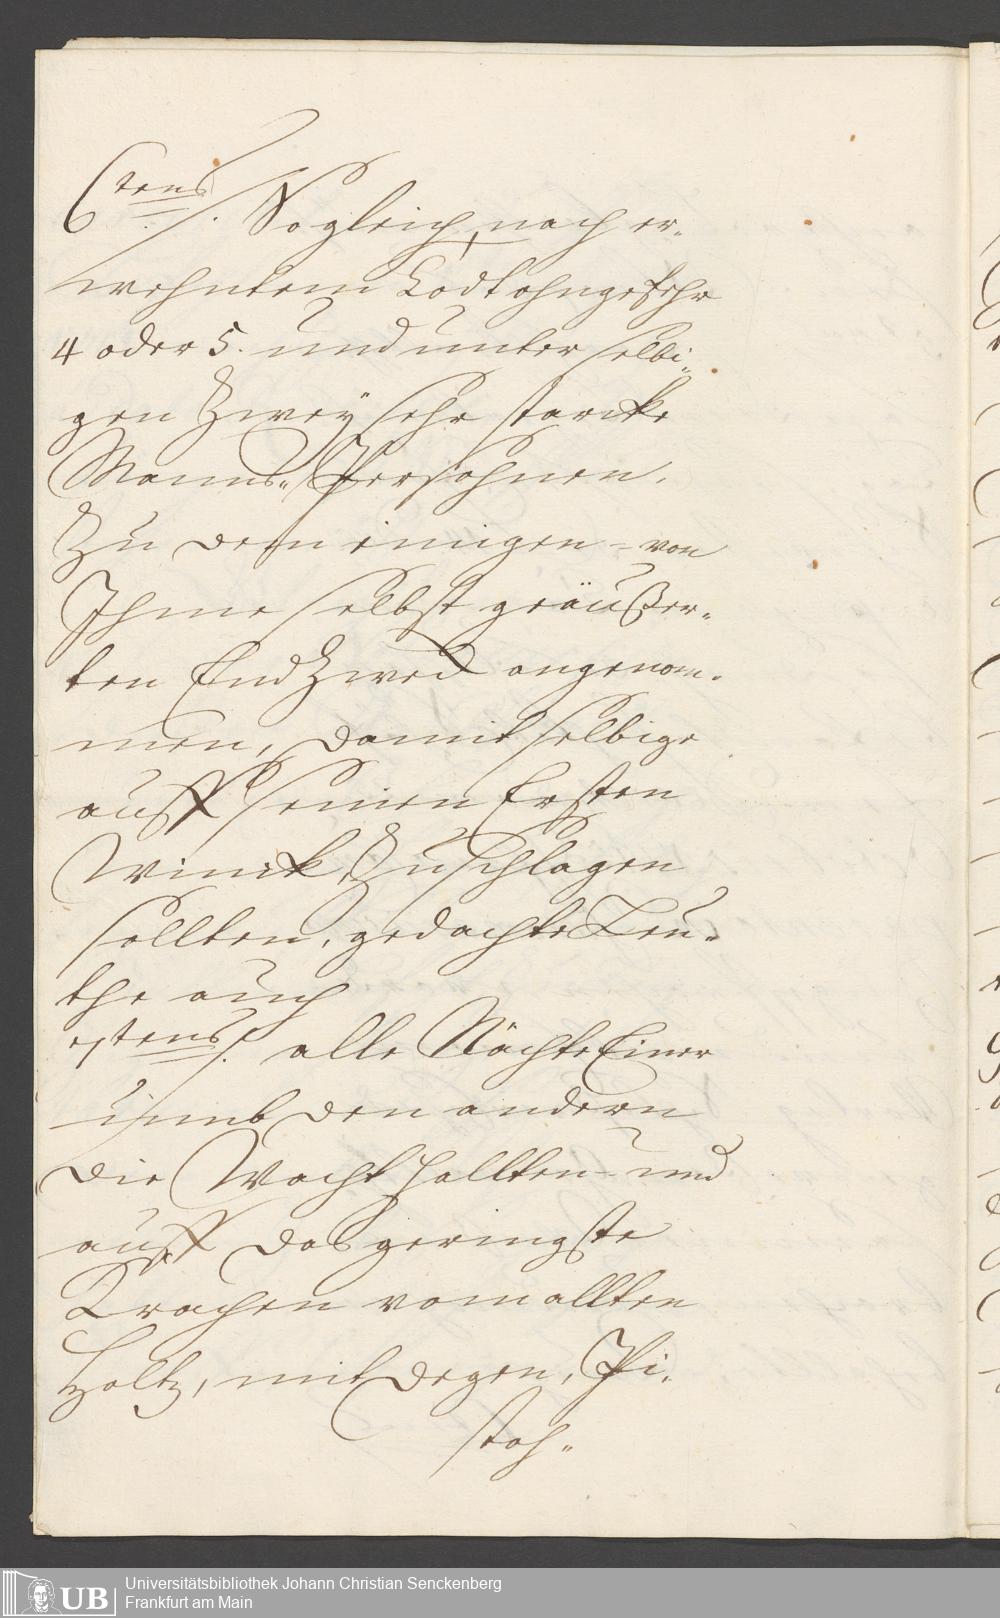 6tens /. So gleich nach er„
wehntem Todt ohngefehr
4 oder 5. und unter selbi„
gen Zwey sehr starcke
Manns„ Persohnen.
Zu dem einigen – von
Ihme selbst geäußer„
ten EndZweck angenom„
men, damit selbige
auff seinen Ersten
Winck Zuschlagen
sollten, gedachte Leu„
the auch
7tens /. alle Nächte Einer
umb den andern
die Wacht hallten – und
auff das geringste
Krachen vom allten
Holtz, mit Degen, Pi„
stoh„
Universitätsbibliothek Johann Christian Senckenberg
Frankfurt am Main
UB